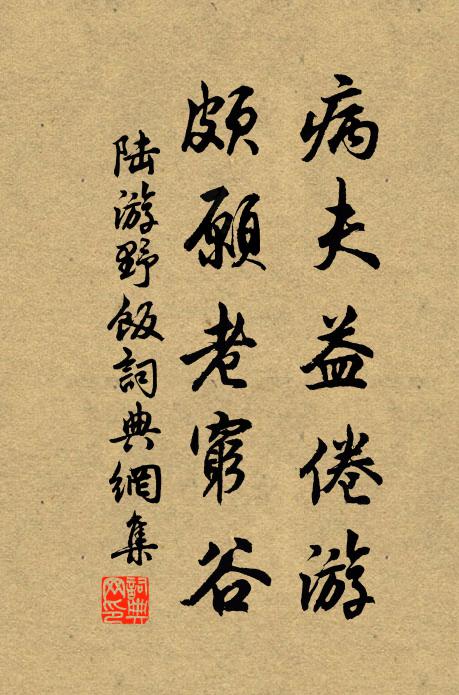 病夫益倦游
頗願老窮谷
陸游野飯詞典網集
詞典网印